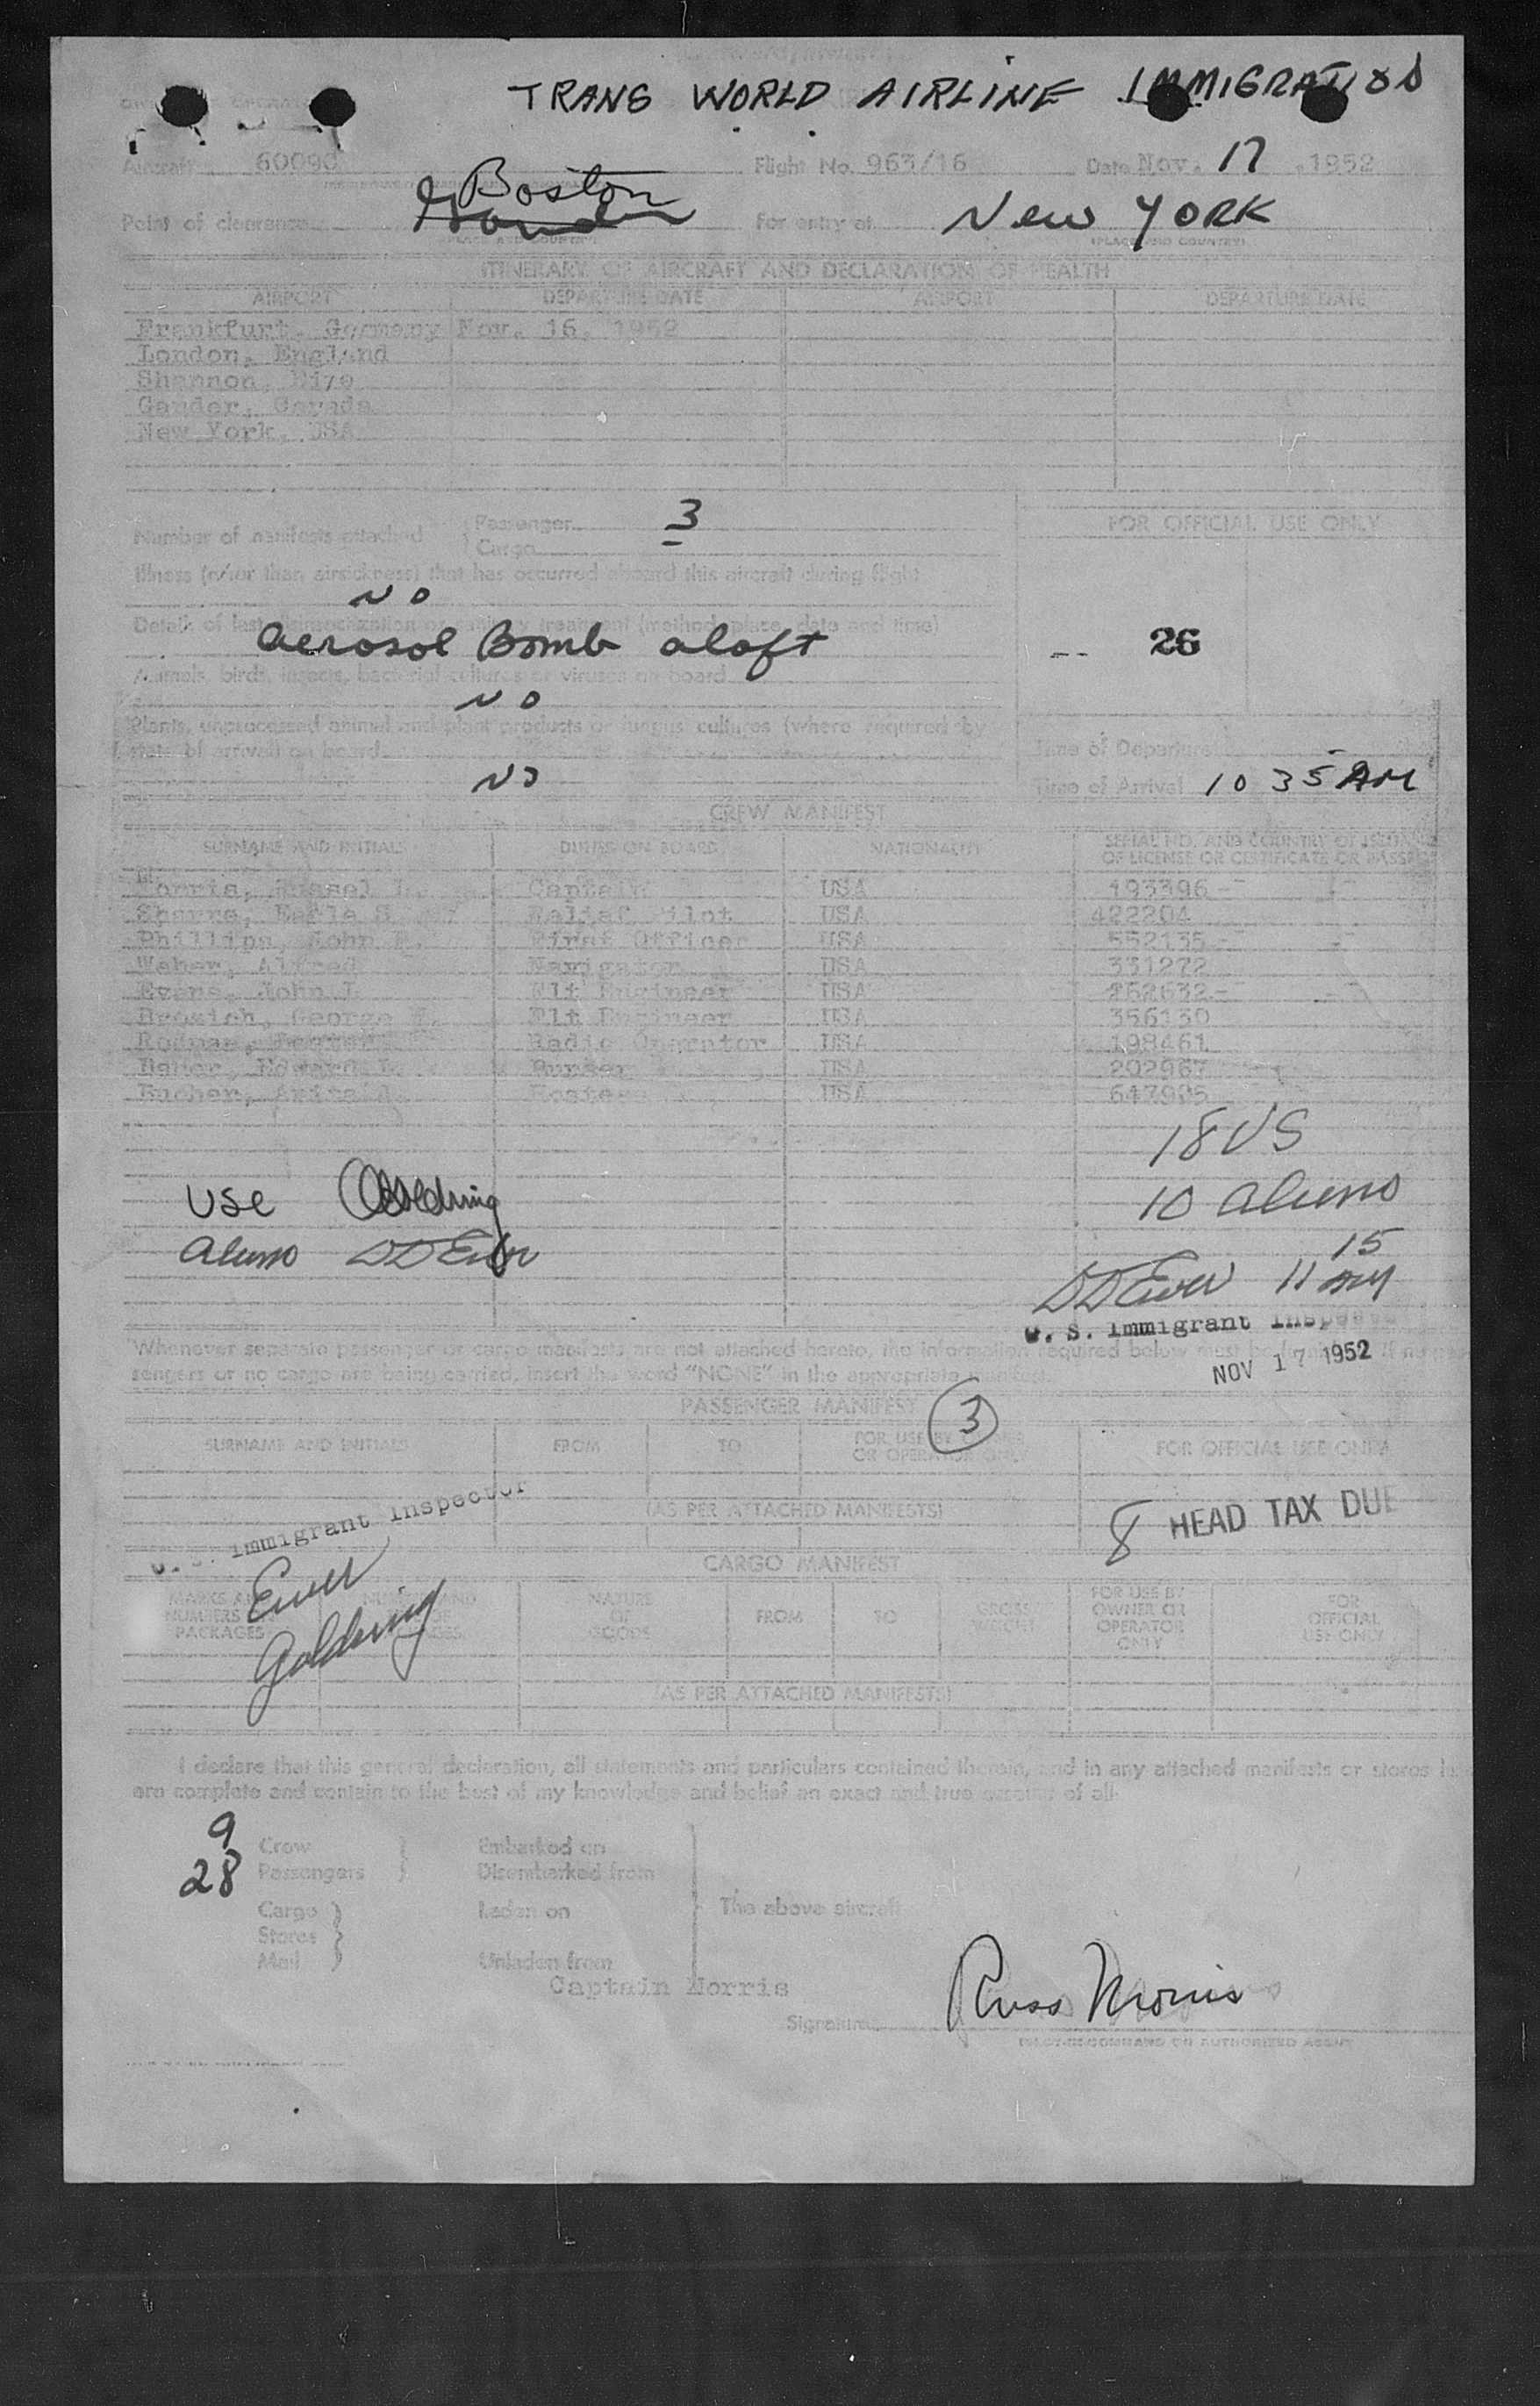 TRANS WORLD AIRLINE IMMIGRATION
Aircraft 60090 Flight No. 963/16 Date Nov. 17, 1952
Boston
Point of clearance Gander For entry at New YORK
(PLACE AND COUNTRY) (PLACE AND COUNTRY)
ITINERARY OF AIRCRAFT AND DECLARATION OF HEALTH
AIRPORT DEPARTURE DATE AIRPORT DEPARTURE DATE
Frankfurt, Germany Nov. 16, 1952
London, England
Shannon, Eire
Gander, Canada
New York, USA
Number of manifests attached Passenger 3
Cargo
FOR OFFICIAL USE ONLY
Illness (other than airsickness) that has occurred aboard this aircraft during flight
NO
Details of last disinsectization or sanitary treatment (method, place, date and time)
Aerosol Bomb aloft
26
Animals, birds, insects, bacterial cultures or viruses on board
NO
Plants, unprocessed animal and plant products or fungus cultures (where required by
state of arrival) on board
NO
Time of Departure
Time of Arrival 10 35 AM
CREW MANIFEST
SURNAME AND INITIALS DUTIES ON BOARD NATIONALITY SERIAL NO. AND COUNTRY OF ISSUE
OF LICENSE OR CERTIFICATE OR PASSPORT
Morris, Russel Captain USA 193396
Earle S. Relief Pilot USA 422204
Phillips, John First Officer USA 552135
Weber, Alfred Navigator USA 331272
Evans, John Flt Engineer USA 252632
George Flt Engineer USA 356130
Radio Operator USA 198461
Edward L. Purser USA 202967
Bucher, Hostess USA 647905
18 US
10 aliens
USC Goldring
aliens DD Ewer
15
DD Ewer 11 AM
U. S. Immigrant Inspector
NOV 17 1952
Whenever separate passenger or cargo manifests are not attached hereto, the information required below must be
sengers or no cargo are being carried, insert the word "NONE" in the appropriate manifest.
PASSENGER MANIFEST 3
SURNAME AND INITIALS FROM TO FOR USE BY OWNER
OR OPERATOR ONLY FOR OFFICIAL USE ONLY
(AS PER ATTACHED MANIFESTS)
8 HEAD TAX DUE
U. S. Immigrant Inspector
Ewer
Goldring
CARGO MANIFEST
MARKS AND
NUMBERS
PACKAGES
NUMBER AND
NATURE
OF
GOODS
FROM TO GROSS
WEIGHT
FOR USE BY
OWNER OR
OPERATOR
ONLY
FOR
OFFICIAL
USE ONLY
(AS PER ATTACHED MANIFESTS)
I declare that this general declaration, all statements and particulars contained therein, and in any attached manifests or stores
are complete and contain to the best of my knowledge and belief an exact and true account of all:
9 Crew Embarked on
28 Passengers Disembarked from
Cargo Laden on The above aircraft
Stores
Mail Unladen from
Captain Morris
Signature Russ Morris